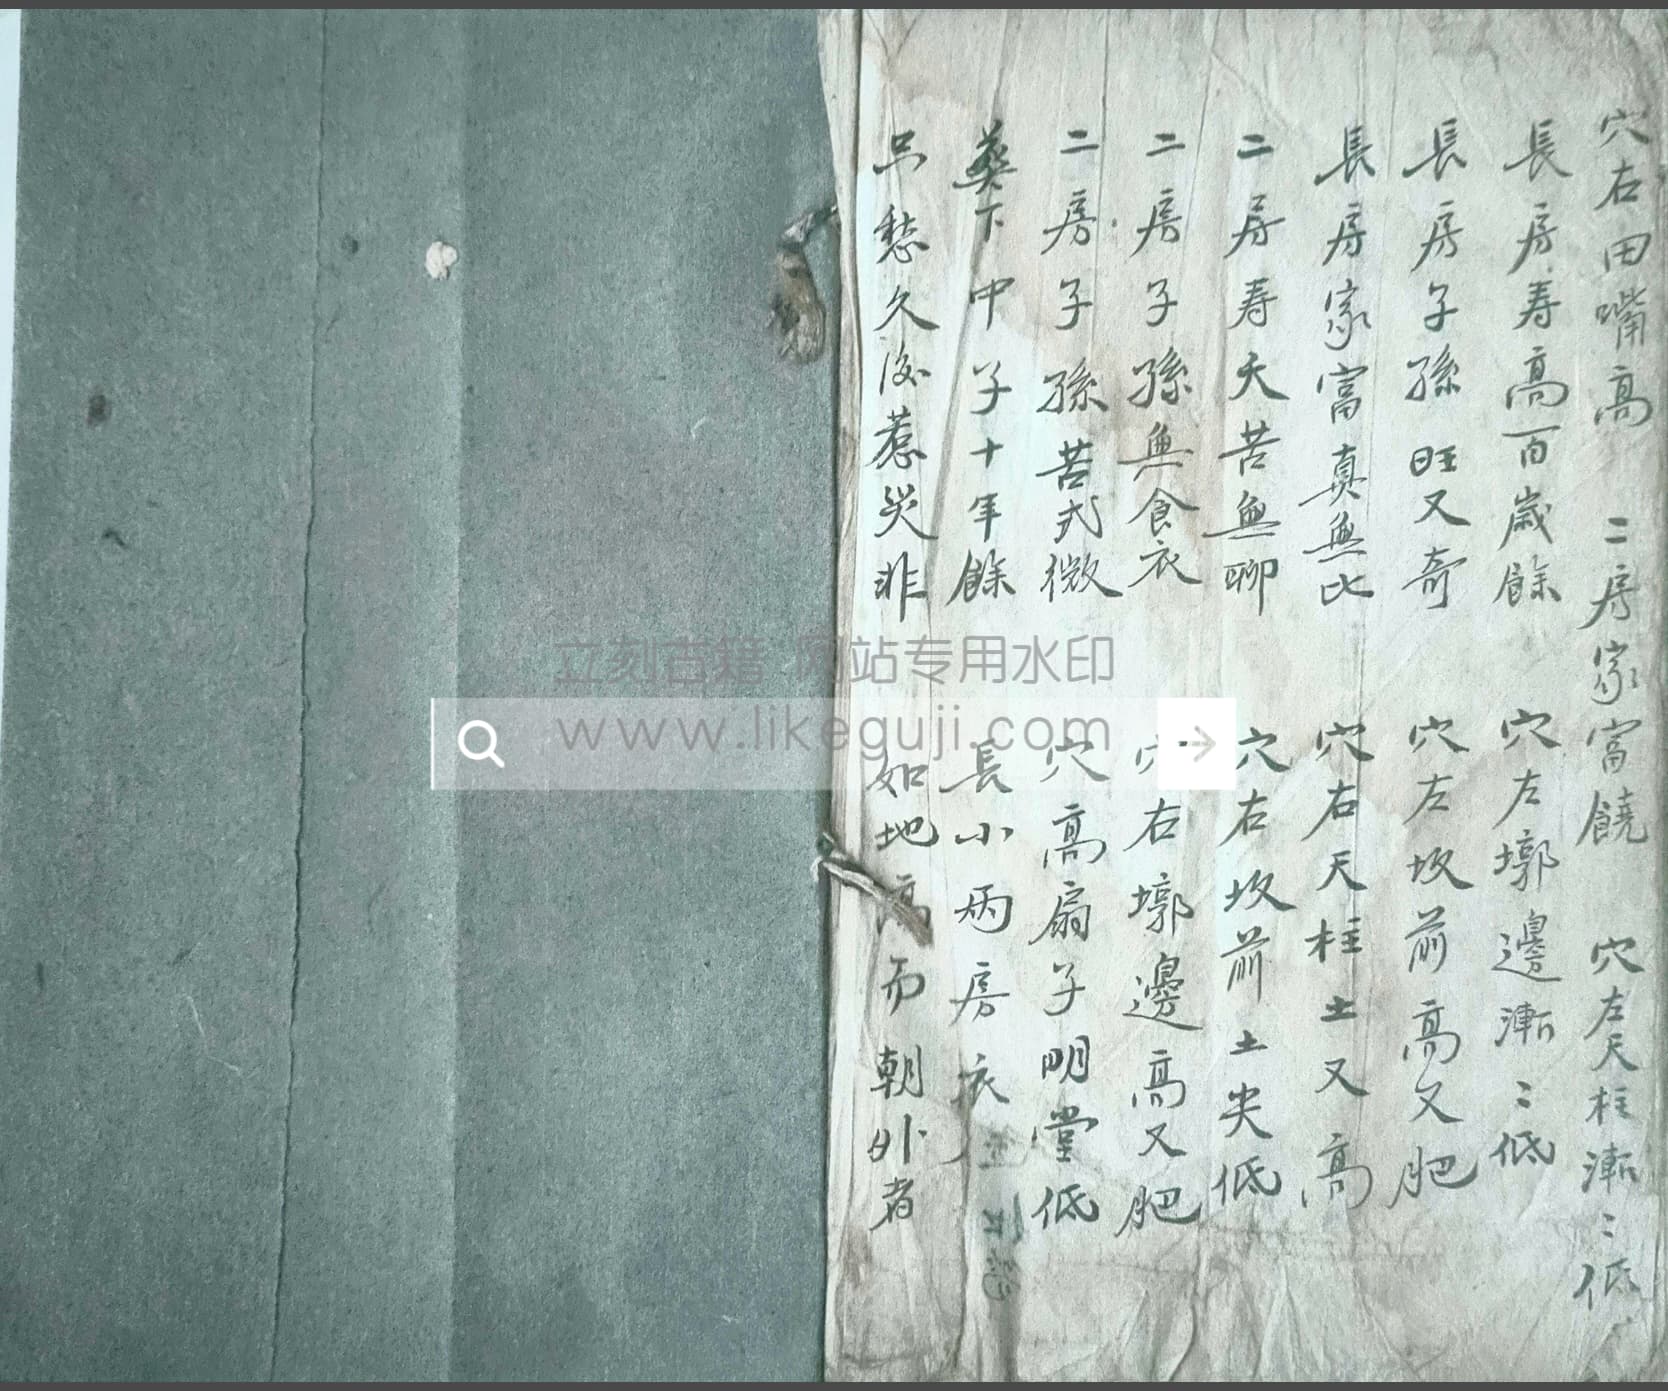 穴右田嘴高 二房家富饒 穴左天柱漸⺀低
長房寿高百歲餘 穴左墎邊漸⺀低
長房子孫旺又奇 穴左坟前高又肥
長房家富真無比 穴右天柱土又高
二房寿夭苦無聊 穴右坟前土尖低
二房子孫無食衣 穴右墎邊高又肥
二房子孫苦式微 穴高扇子明堂低
葬下中子十年餘 長小兩房衣
只愁久後惹災非 如地高而朝外者
立刻古籍 网站专用水印
www.likeguji.com